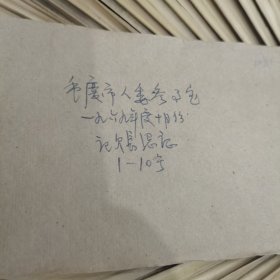 重庆市人委参事室
一九六九年度十月份
记账凭证
1—10号